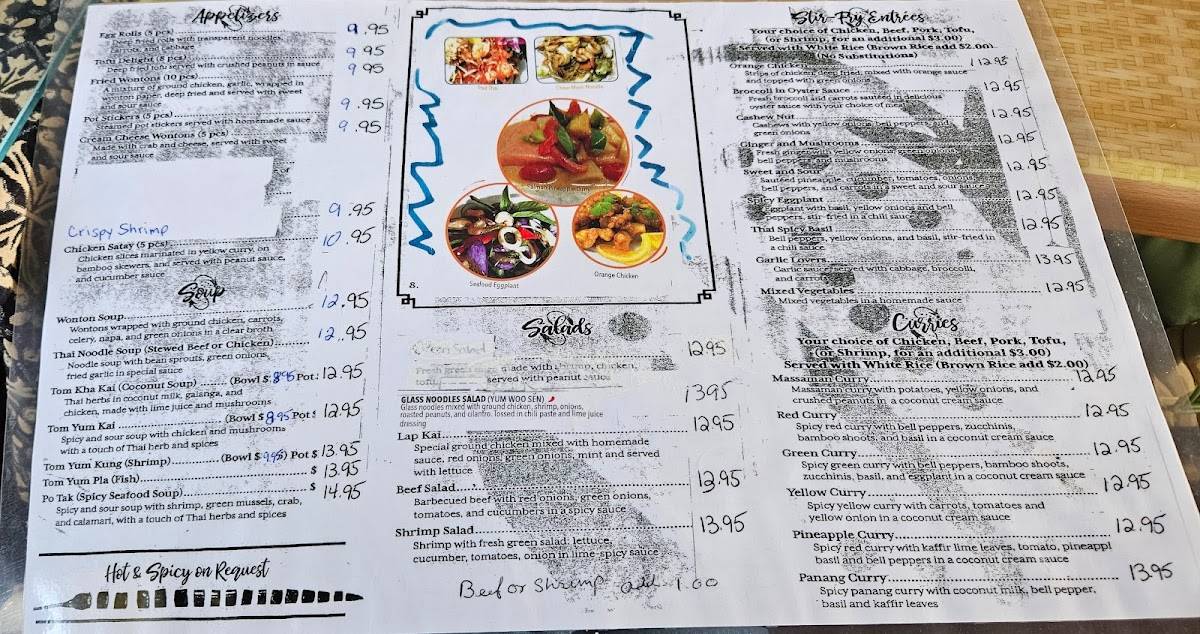 Appetizers
Egg Rolls (5 pcs) 9.95
Deep fried rolls with transparent noodles,
and cabbage
Tofu Delight (8 pcs) 9.95
Deep fried tofu served with crushed peanuts in sauce
Fried Wontons (10 pcs) 9.95
A mixture of ground chicken, garlic, wrapped in
wonton paper, deep fried and served with sweet
and sour sauce
Pot Stickers (5 pcs) 9.95
Steamed pot stickers served with homemade sauce
Cream Cheese Wontons (5 pcs) 9.95
Made with crab and cheese, served with sweet
and sour sauce
or
Crispy Shrimp 9.95
Chicken Satay (5 pcs) 10.95
Chicken slices marinated in yellow curry, on
bamboo skewers, and served with peanut sauce,
and cucumber sauce
Soup
Wonton Soup 12.95
Wontons wrapped with ground chicken, carrots,
celery, napa, and green onions in a clear broth
Thai Noodle Soup (Stewed Beef or Chicken) 12.95
Noodle soup with bean sprouts, green onions,
fried garlic in special sauce
Tom Kha Kai (Coconut Soup) (Bowl $ 8.95 Pot: 12.95
Thai herbs in coconut milk, galanga, and
chicken, made with lime juice and mushrooms
Tom Yum Kai (Bowl $ 8.95 Pot $ 12.95
Spicy and sour soup with chicken and mushrooms
with a touch of Thai herb and spices
Tom Yum Kung (Shrimp) (Bowl $ 9.95) Pot $ 13.95
Tom Yum Pla (Fish) $ 13.95
Po Tak (Spicy Seafood Soup) $ 14.95
Spicy and sour soup with shrimp, green mussels, crab,
and calamari, with a touch of Thai herbs and spices
Hot & Spicy on Request
Pad Thai
Orange Chicken
Seafood Eggplant
8.
Salads
Green Salad 12.95
made with shrimp, chicken,
served with peanut sauce
GLASS NOODLES SALAD (YUM WOO SEN) 13.95
Glass noodles mixed with ground chicken, shrimp, onions,
roasted peanuts, and cilantro. tossed in chili paste and lime juice
dressing
Lap Kai 12.95
Special ground chicken mixed with homemade
sauce, red onions, green onions, mint and served
with lettuce
Beef Salad 12.95
Barbecued beef with red onions, green onions,
tomatoes, and cucumbers in a spicy sauce
Shrimp Salad 13.95
Shrimp with fresh green salad: lettuce,
cucumber, tomatoes, onion in lime-spicy sauce
Beef or Shrimp add 1.00
Stir-Fry Entrées
Your choice of Chicken, Beef, Pork, Tofu,
(or Shrimp, for an additional $3.00)
Served with White Rice (Brown Rice add $2.00)
(No Substitutions)
Orange Chicken 12.95
Strips of chicken deep fried, mixed with orange sauce
and topped with green onions
Broccoli in Oyster Sauce 12.95
Fresh broccoli and carrots sautéed in delicious
oyster sauce with your choice of meat
Cashew Nut 12.95
Cashews with yellow onions, bell peppers,
green onions
Ginger and Mushrooms 12.95
Fresh ginger with yellow onions, green onions,
bell peppers, and mushrooms
Sweet and Sour 12.95
Sautéed pineapple, cucumber, tomatoes, onions,
bell peppers, and carrots in a sweet and sour sauce
Spicy Eggplant 12.95
Eggplant with basil, yellow onions and bell
peppers, stir-fried in a chili sauce
Thai Spicy Basil 12.95
Bell peppers, yellow onions, and basil, stir-fried in
a chili sauce
Garlic Lovers 13.95
Garlic sauce, served with cabbage, broccoli,
and carrots
Mixed Vegetables 12.95
Mixed vegetables in a homemade sauce
Curries
Your choice of Chicken, Beef, Pork, Tofu,
(or Shrimp, for an additional $3.00)
Served with White Rice (Brown Rice add $2.00)
Massaman Curry 12.95
Massaman curry with potatoes, yellow onions, and
crushed peanuts in a coconut cream sauce
Red Curry 12.95
Spicy red curry with bell peppers, zucchinis,
bamboo shoots, and basil in a coconut cream sauce
Green Curry 12.95
Spicy green curry with bell peppers, bamboo shoots,
zucchinis, basil, and eggplant in a coconut cream sauce
Yellow Curry 12.95
Spicy yellow curry with carrots, tomatoes and
yellow onion in a coconut cream sauce
Pineapple Curry 12.95
Spicy red curry with kaffir lime leaves, tomato, pineappl
basil and bell peppers in a coconut cream sauce
Panang Curry 13.95
Spicy panang curry with coconut milk, bell pepper,
basil and kaffir leaves